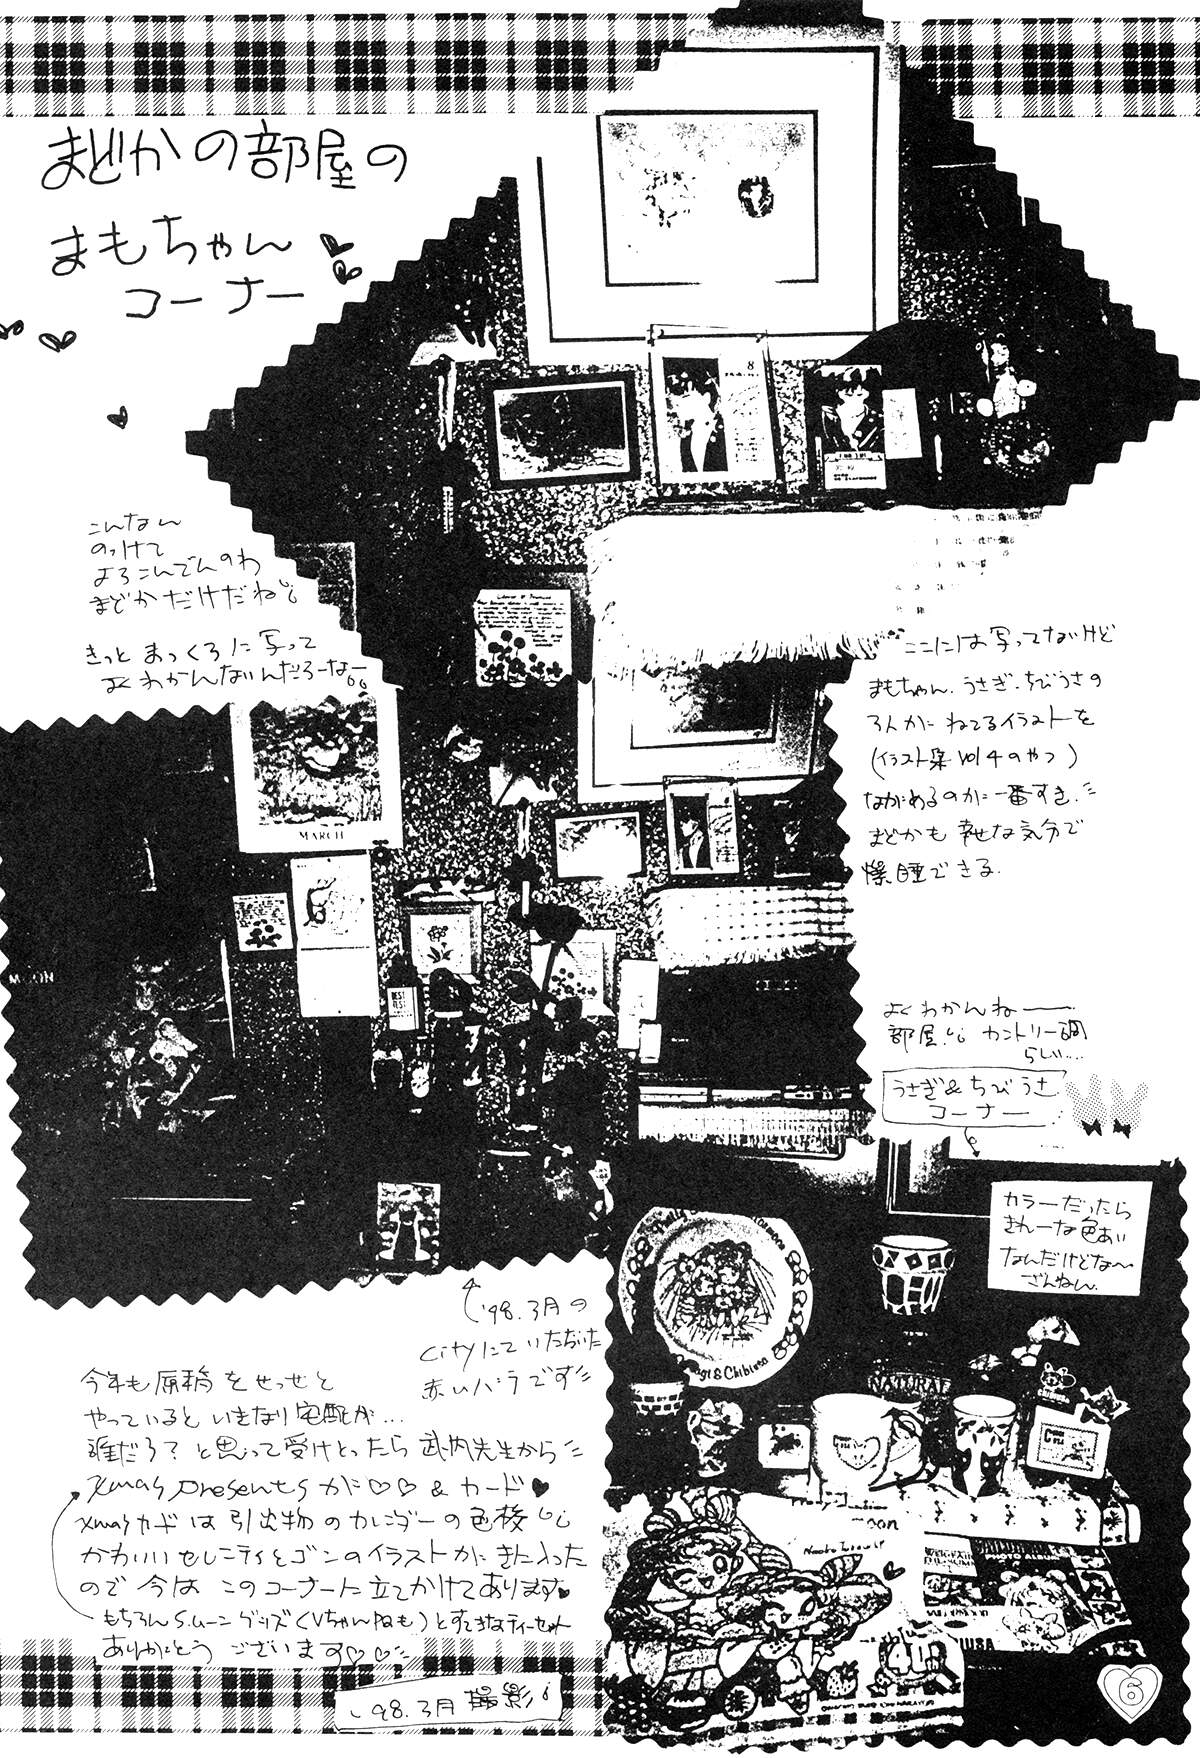 まどかの部屋の
まもちゃん
コーナー
こんなん
のっけて
よろこんでんのわ
まどかだけだね
きっと まっくろに 写って
よく わかんないんだろーなー
ここには 写ってないけど
まもちゃん、うさぎ、ちびうさの
3人が ねてるイラストを
(イラスト集 vol 4 のやつ)
ながめるのが 一番すき
まどかも 幸せな気分で
爆睡できる
MARCH
MOON
よく わかんねー
部屋 カントリー調
らしい…
うさぎ&ちびうさ
コーナー
カラーだったら
きれーな色あい
なんだけどな〜
ざんねん
'98.3月の
cityにて いただいた
赤いバラです
& Chibiusa
NATURAL
今年も原稿をせっせと
やっていると いきなり宅配が…
誰だろ? と思って受けとったら 武内先生から
Xmas presents が♡♡ & カード♥
Xmasカード は 引出物 の カレンダーの色校
かわいい セレニティとゴンのイラストが きに入った
ので 今は このコーナーに 立てかけて あります♥
もちろん S.ムーン グッズ (Vちゃんねも) とすてきなティーセット
ありがとう ございます♡♡
PHOTO ALBUM
'98.3月 撮影
6